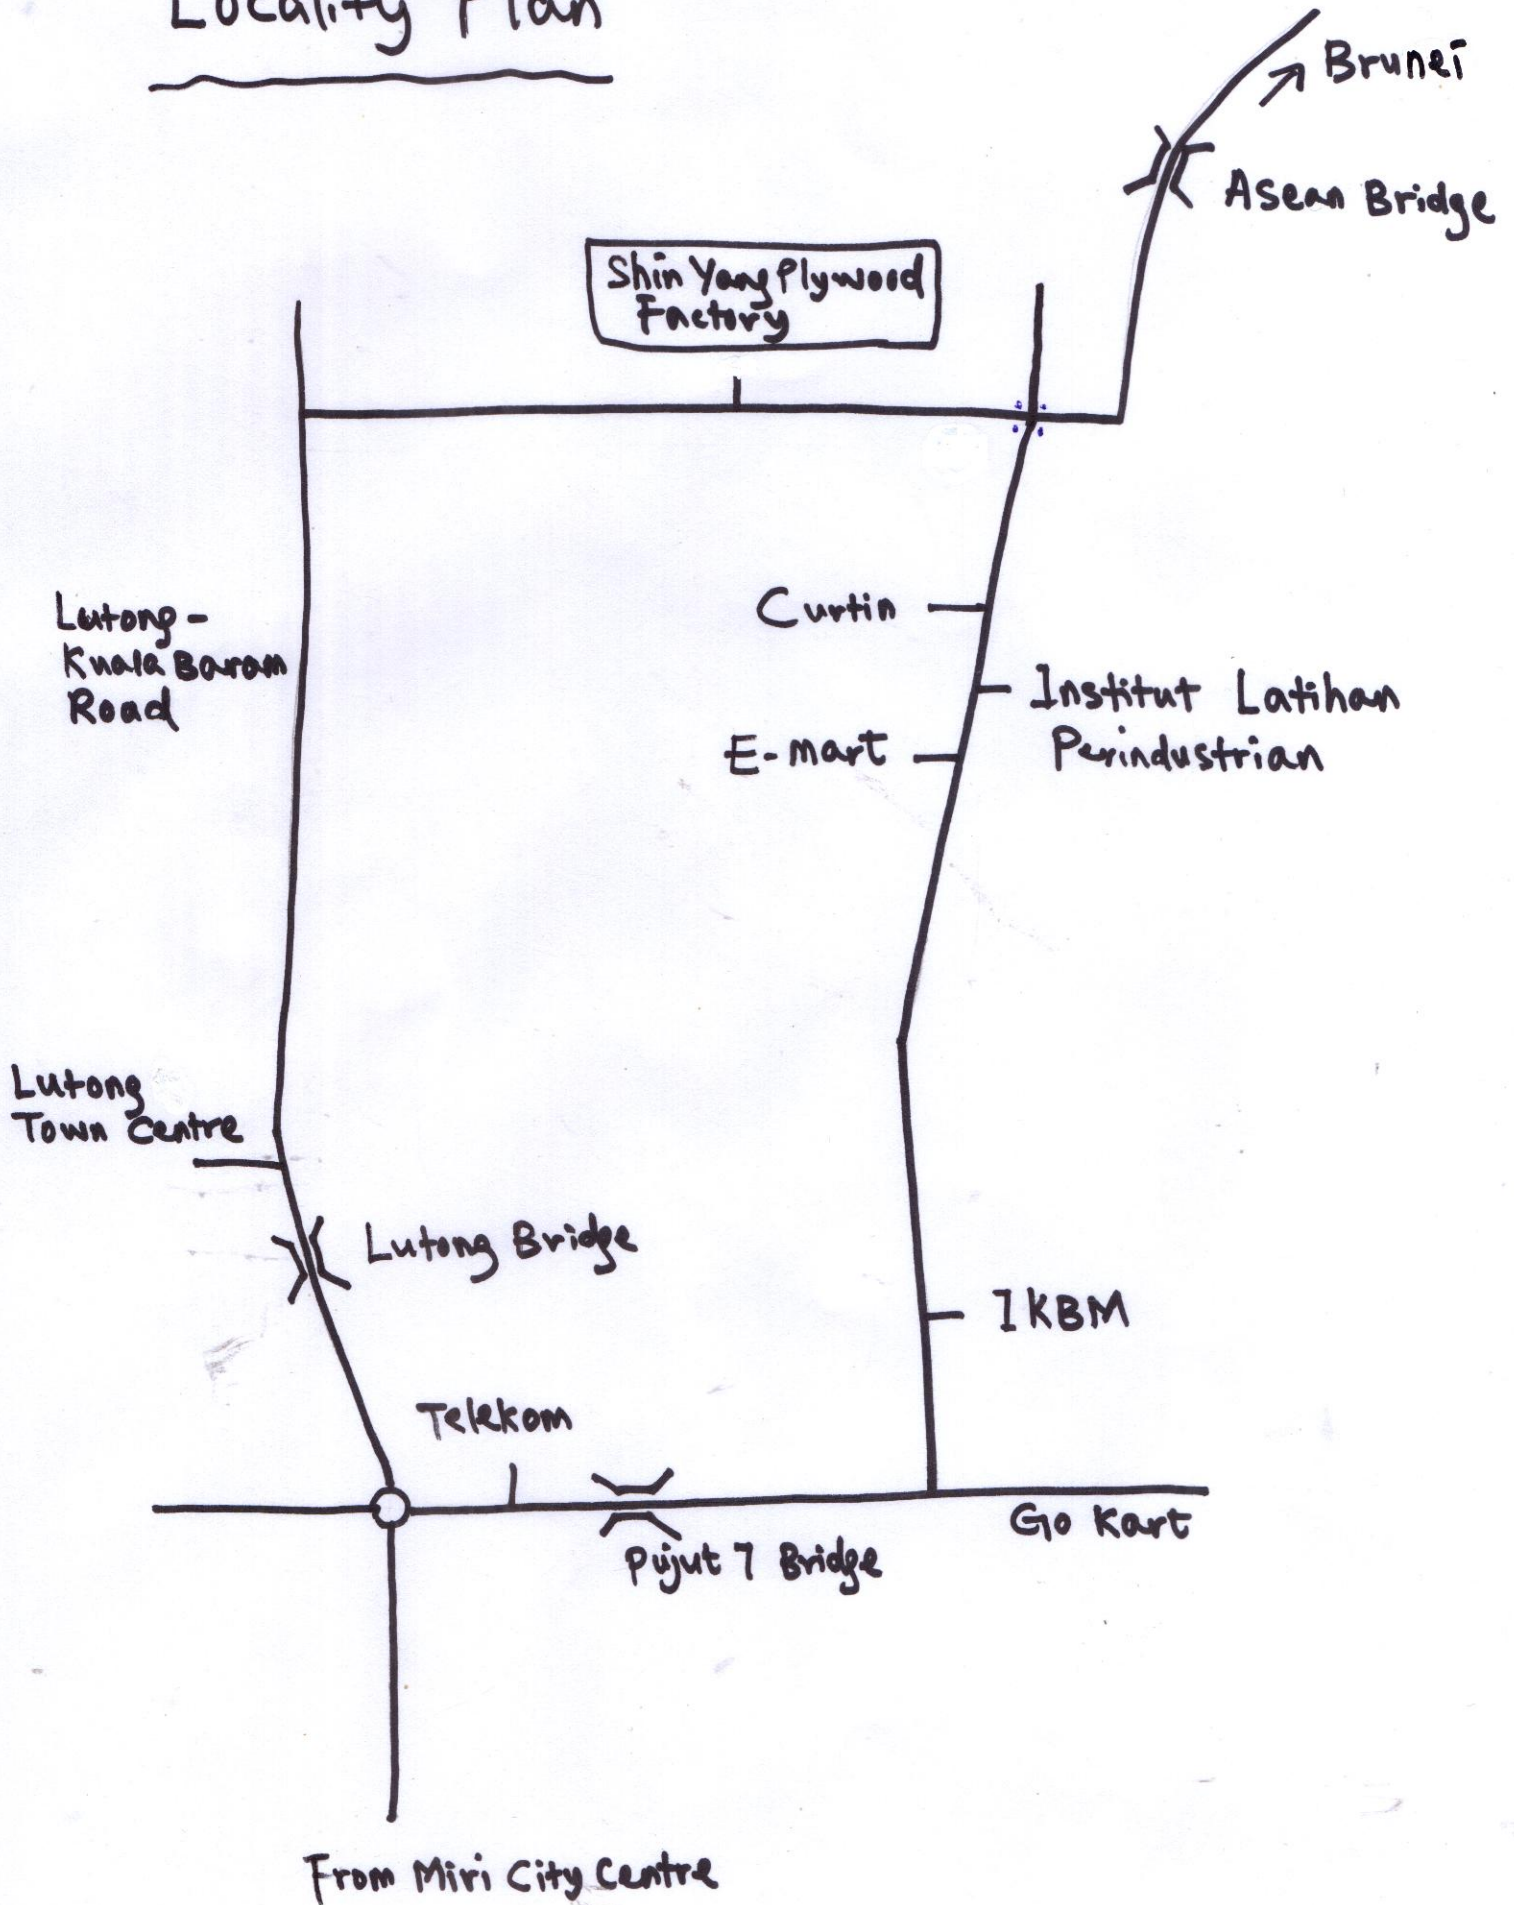 Locality Plan
Brunei
Asean Bridge
Shin Yang Plywood
Factory
Curtin
Lutong-
Kuala Baram
Road
Institut Latihan
Perindustrian
E-mart
Lutong
Town Centre
Lutong Bridge
IKBM
Telekom
Go Kart
Pujut 7 Bridge
From Miri City Centre